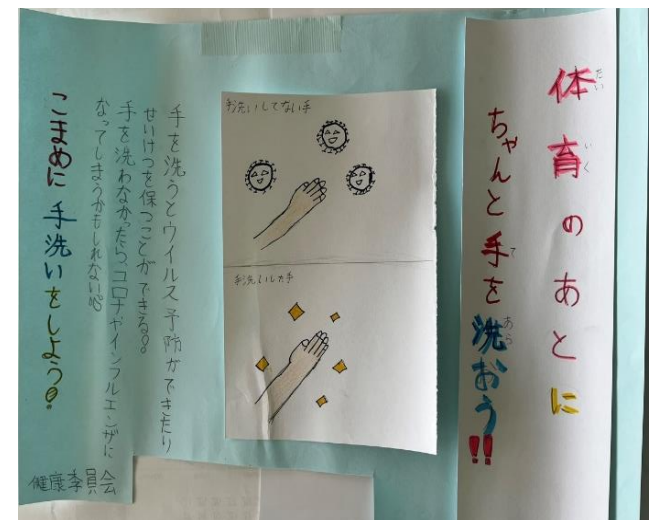 体育のあとに
たい
いく
ちゃんと手を洗おう!!
て
あら
手洗いしてない手
手洗いした手
手を洗うとウイルス予防ができたり
せいけつを保つことができる。
手を洗わなかったら、コロナやインフルエンザに
なってしまうかもしれない。
こまめに手洗いをしよう。
健康委員会